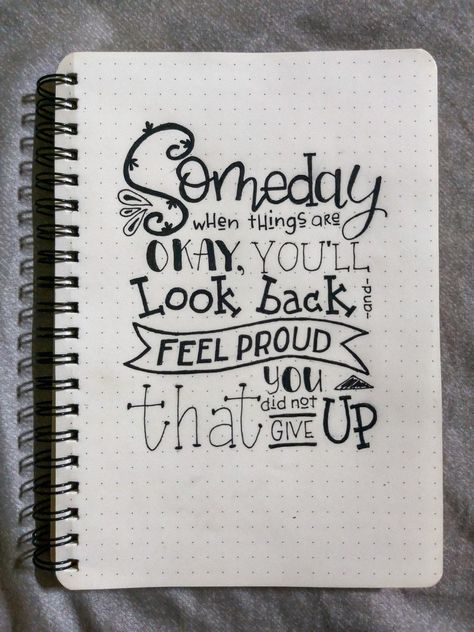 Someday
when things are
OKAY, YOU'LL
Look back -and-
FEEL PROUD
that you
did not
GIVE UP